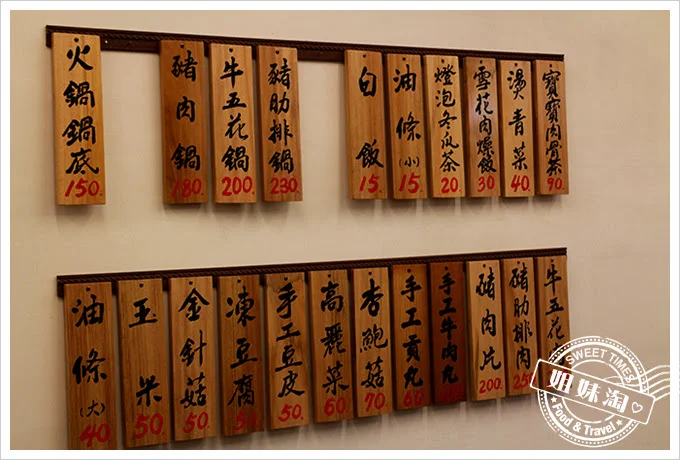 火鍋鍋底
150.
豬肉鍋
180.
牛五花鍋
200.
豬肋排鍋
230.
白飯
15.
油條(小)
15.
燈泡冬瓜茶
20.
雪花肉燥飯
30
燙青菜
40.
寶寶肉骨茶
90.
油條(大)
40
玉米
50.
金針菇
50.
凍豆腐
手工豆皮
50.
高麗菜
60
杏鮑菇
70
手工貢丸
60
手工牛肉丸
豬肉片
200.
豬肋排肉
250
牛五花
SWEET TIMES
姐妹淘
Food & Travel